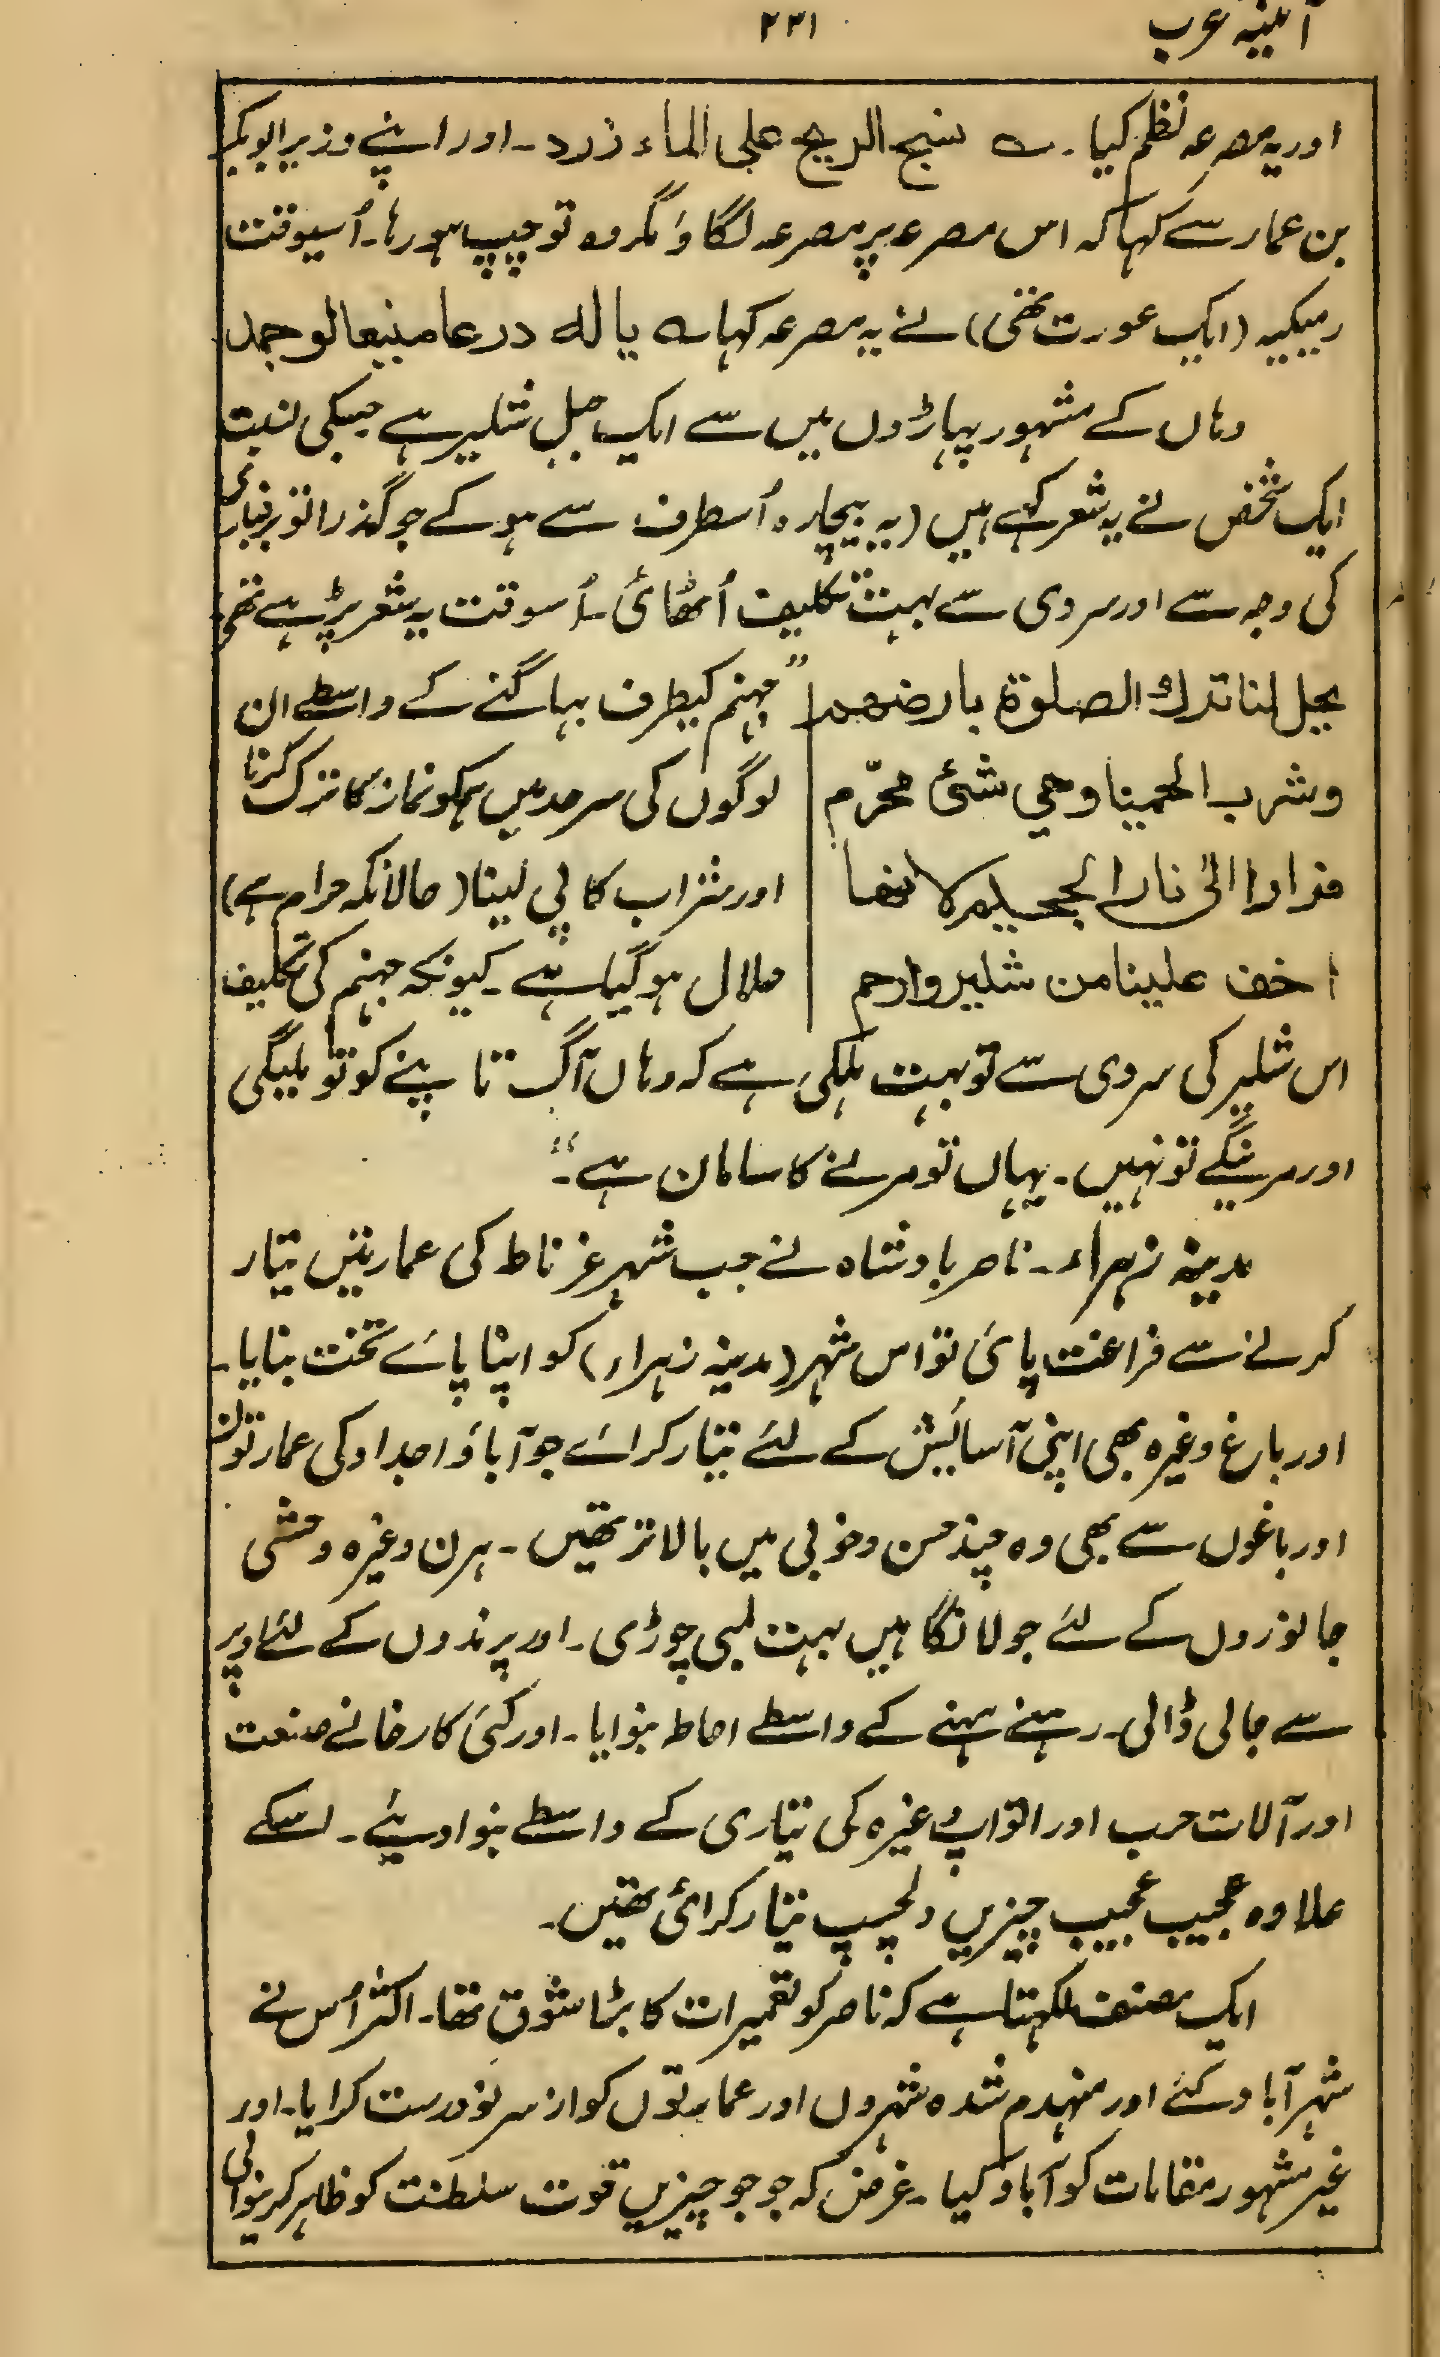 آئینۂ عرب
۲۳۱
اور یہ مصرعہ نظم کیا۔ ؎ نسج الریح علی الماء زرد۔ اور اپنے وزیر ابوبکر
بن عمار سے کہا کہ اس مصرعہ پر مصرعہ لگاؤ مگر وہ تو چپ ہو رہا۔ اُسیوقت
رمیکیہ (ایک عورت تھی) نے یہ مصرعہ کہا ؎ یا لہ درعا منیعا لو جمد
وہاں کے مشہور پہاڑوں میں سے ایک جبل شلیر ہے جسکی نسبت
ایک شخص نے یہ شعر کہے ہیں (یہ بیچارہ اُسطرف سے ہو کے جو گذرا تو برفباری
کی وجہ سے اور سردی سے بہت تکلیف اُٹھائی۔ اُسوقت یہ شعر پڑہے تھے
یحل لنا ترک الصلوۃ بارضھم
"جہنم کیطرف بہاگنے کے واسطے ان
وشرب الحمیا وھی شئ محرّم
لوگوں کی سرحد میں ہمکو نماز کا ترک کرنا
فرارا الی نار الجحیم لانھا
اور شراب کا پی لینا (حالانکہ حرام ہے)
اخف علینا من شلیر وارحم
حلال ہو گیا ہے۔ کیونکہ جہنم کی تکلیف
اس شلیر کی سردی سے تو بہت ہلکی ہے کہ وہاں آگ تاپنے کو تو ملیگی
اور مرینگے تو نہیں۔ یہاں تو مرنے کا سامان ہے۔"
مدینہ زہراء۔ ناصر بادشاہ نے جب شہر غرناطہ کی عمارتیں تیار
کرنے سے فراغت پائی تو اس شہر (مدینہ زہراء) کو اپنا پائے تخت بنایا۔
اور باغ وغیرہ بھی اپنی آسایش کے لئے تیار کرائے جو آباؤ اجداد کی عمارتوں
اور باغوں سے بھی وہ چند حسن و خوبی میں بالاتر تھیں۔ ہرن وغیرہ وحشی
جانوروں کے لئے جولانگاہیں بہت لمبی چوڑی۔ اور پرندوں کے لئے اوپر
سے جالی ڈالی۔ رہنے سہنے کے واسطے احاطہ بنوایا۔ اور کئی کارخانے صنعت
اور آلات حرب اور اتواپ وغیرہ کی تیاری کے واسطے بنوا دیئے۔ اسکے
علاوہ عجیب عجیب چیزیں دلچسپ تیار کرائی تھیں۔
ایک مصنف لکہتا ہے کہ ناصر کو تعمیرات کا بڑا شوق تھا۔ اکثر اُس نے
شہر آباد کئے اور منہدم شدہ شہروں اور عمارتوں کو از سر نو درست کرایا۔ اور
غیر مشہور مقامات کو آباد کیا۔ غرض کہ جو جو چیزیں قوت سلطنت کو ظاہر کرنیوالی